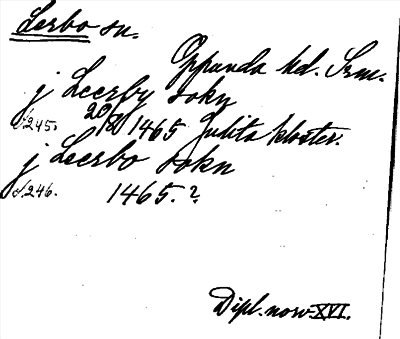 Lerbo sn.
Oppunda hd. Srm.
j Leerby sokn
s. 245. 20/8 1465 Julita kloster.
j Leerbo sokn
s. 246. 1465. ?
Dipl. norv. XVI.